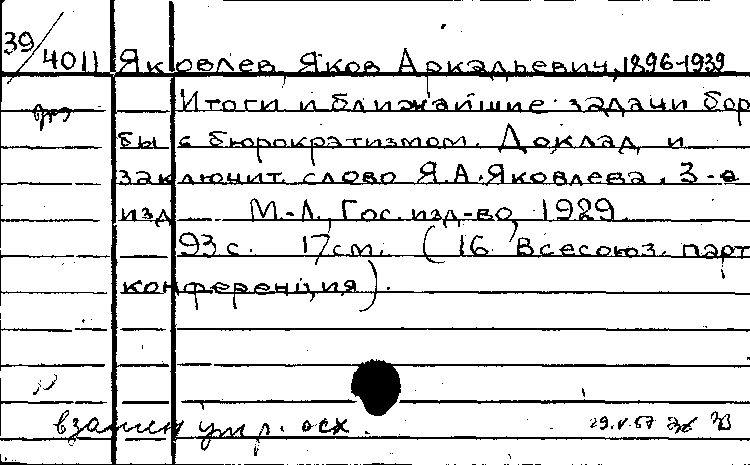 39/4011 Яковлев, Яков Аркадьевич, 1896-1939
Итоги и ближайшие задачи бор
бы с бюрократизмом. Доклад и
заключит. слово Я.А.Яковлева. 3-е
изд М.-Л., Гос. изд-во, 1929.
93с. 17см. (16 Всесоюз. парт
конференция).
взамен утр. осх.
29.V.67